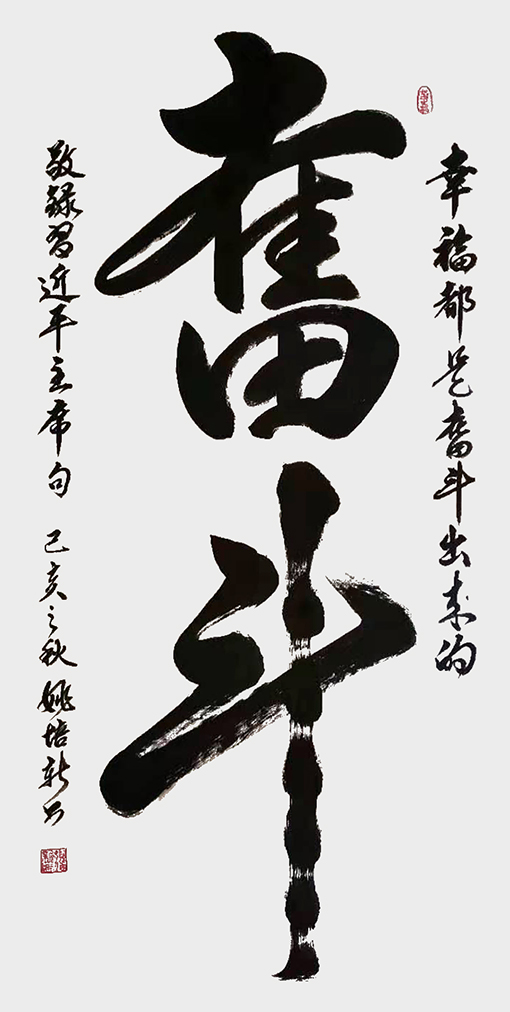 幸福都是奮斗出来的
奮斗
敬録習近平主席句 己亥之秋 姚培新书